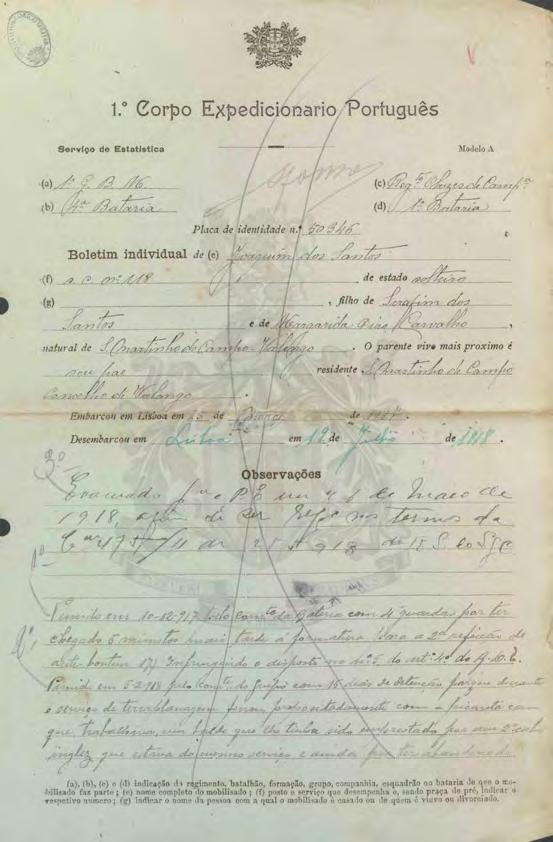 1.º Corpo Expedicionario Português
Serviço de Estatistica
Modelo A
(a) 1º G. B. M.
(c) Regto Obuzes de Campª
(b) 4ª Bataria
(d) 1ª Bataria
Placa de identidade n.º 50946
Boletim individual de (e) Joaquim dos Santos
(f) s. c. nº 118 de estado solteiro
(g) , filho de Serafim dos
Santos e de Margarida Dias Carvalho,
natural de S. Martinho de Campo Valongo. O parente vivo mais proximo é
seu pae residente S. Martinho de Campo
Concelho de Valongo.
Embarcou em Lisboa em de de 1917.
Desembarcou em Lisboa em 12 de Julho de 1918.
Observações
3º
Evacuado em de Maio de
1918, a fim de ser nos termos da
de 918
1º
Punido em 10-12-917 pelo comte da Bateria com 4 guardas por ter
chegado 5 minutos mais tarde à formatura para a 2ª refeição de
2º
hontem infringindo o disposto no nº 5 do artº 4º do R. D. E.
Punido em 5-2-918 pelo comte do grupo com 15 dias de detenção porque durante
o serviço de terraplanagem propositadamente com a picareta com
que trabalhava, um balde que lhe tinha sido emprestado por um 2º cabo
inglez, que estava do mesmo serviço e ainda por ter abandonado
(a), (b), (c) e (d) indicação do regimento, batalhão, formação, grupo, companhia, esquadrão ou bataria de que o mo-
bilisado faz parte; (e) nome completo do mobilisado; (f) posto e serviço que desempenha e, sendo praça de pré, indicar o
respetivo numero; (g) indicar o nome da pessoa com a qual o mobilisado é casado ou de quem é viuvo ou divorciado.